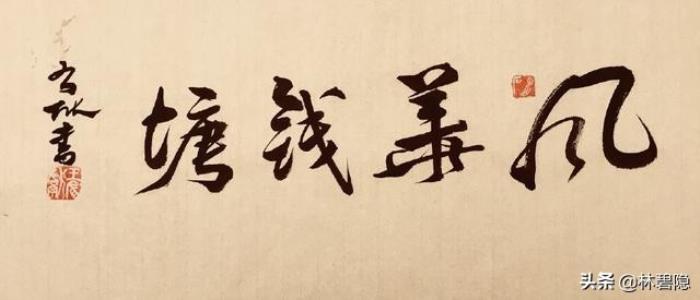 风華錢塘
書
头条 @林碧隐